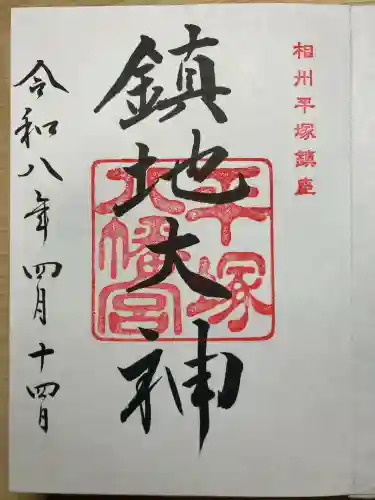 相州平塚鎮座
鎮地大神
平塚
八幡宮
令和八年四月十四日